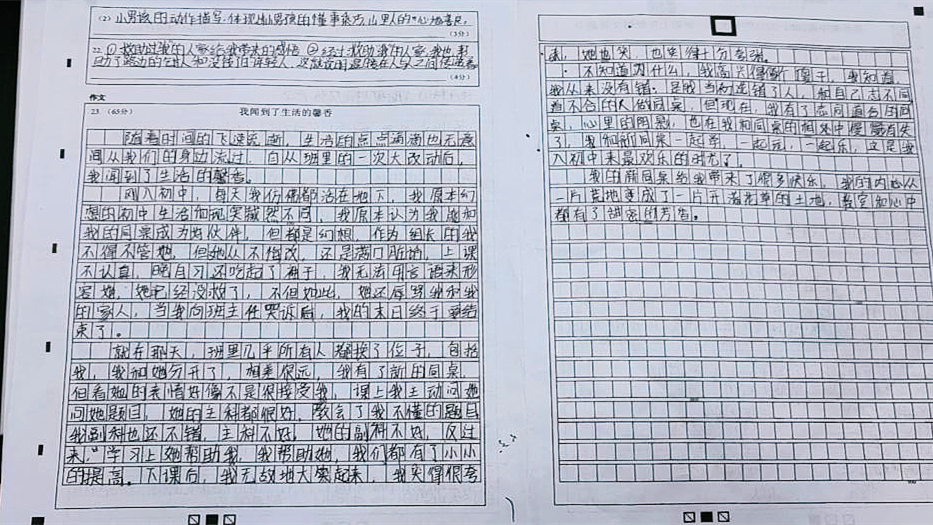 (2) 小男孩的动作描写,体现出小男孩的懂事表方山里人的心地善良。
(3分)
22. ① 救助过我的人家给我带来的感悟 ② 经过救助我的人家,我也
(4分)
作文
23. (65分) 我闻到了生活的馨香
随着时间的飞速流逝,生活的点点滴滴也无意
间从我们的身边流过,自从班里的一次大改动后,
我闻到了生活的馨香。
刚入初中,每天我仿佛都活在地下,我原本幻
想的初中生活和现实截然不同,我原本认为我能和
我的同桌成为好伙伴,但都是幻想,作为组长的我
不得不管她,但她从不悔改,还是满口脏话,上课
不认真,晚自习还吃起了柚子,我无法用言语来形
容她,她已经没救了,不但如此,她还辱骂我和我
的家人,当我向班主任哭诉后,我的末日终于要结
束了。
就在那天,班里几乎所有人都换了位子,包括
我,我和她分开了,相差很远,我有了新的同桌,
但看她的表情好像不是很接受我,课上我主动问她
问她题目,她的主科都很好,教会了我不懂的题目
我副科也还不错,主科不好,她的副科不好,反过
来,学习上她帮助我,我帮助她,我们都有了小小
的提高。下课后,我无故地大笑起来,我笑得很夸
张,她也笑,也笑得十分夸张。
不知道为什么,我高兴得像个傻子,我知道,
我从来没有错,是我当初选错了人,和自己志不同
道不合的人做同桌,但现在,我有了志同道合的同
桌,心里的阴影,也在我和同桌的相处中慢慢消失
了,我和新同桌一起学,一起玩,一起乐,这是我
入初中来最欢乐的时光了。
我的新同桌给我带来了很多快乐,我的内心从
一片荒地变成了一片开洛花草的土地,教室和心中
都有了甜蜜的芳香。